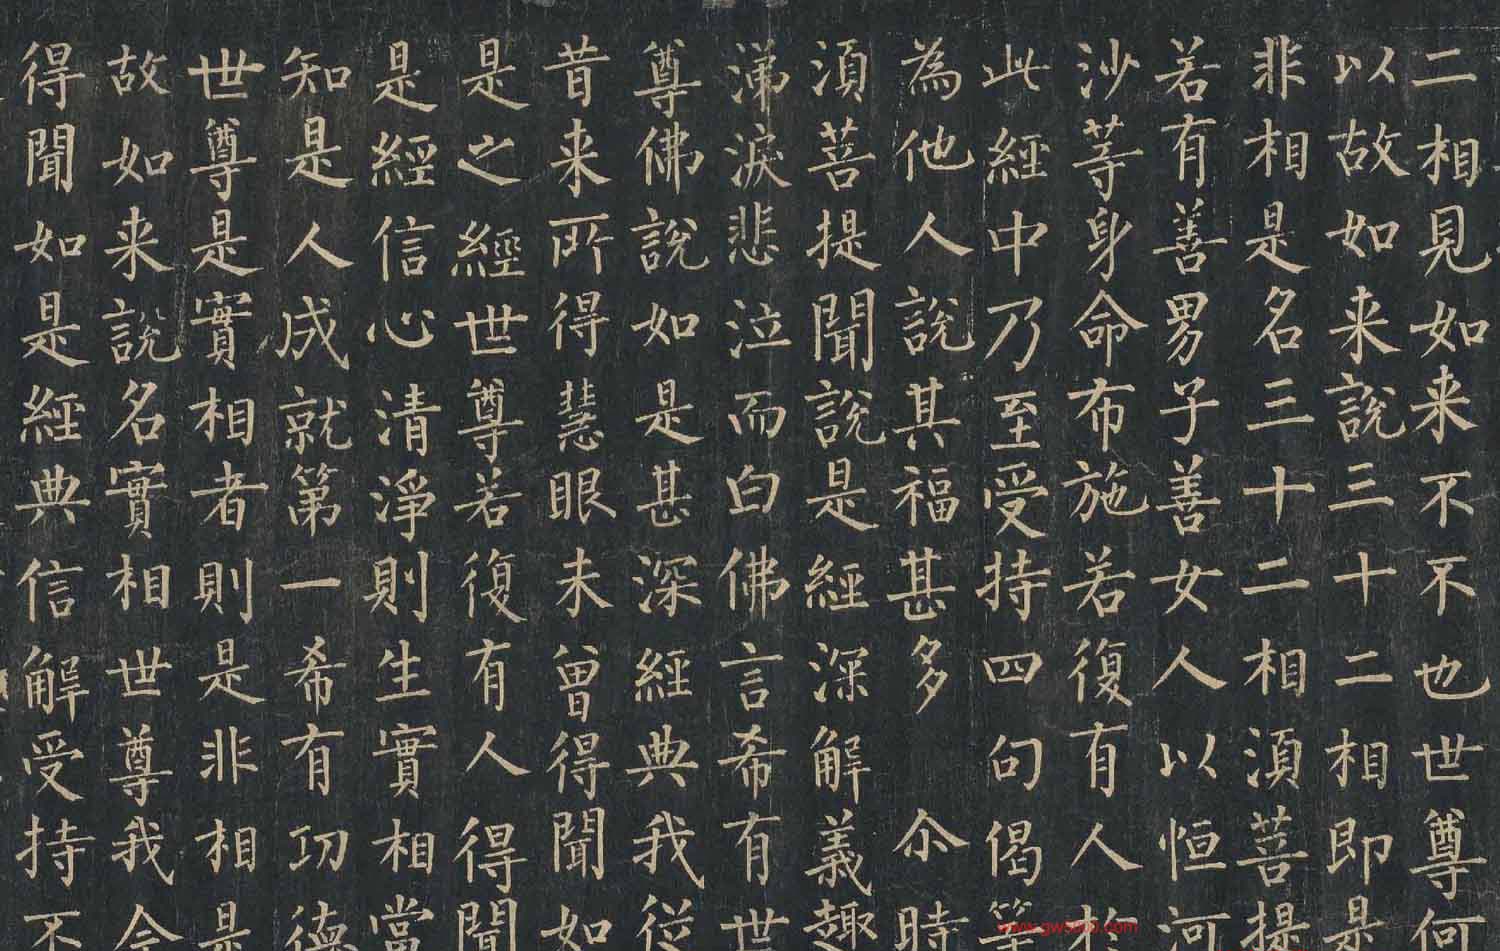 二相見如来不不也世尊何
以故如来說三十二相即是
非相是名三十二相湏菩提
若有善男子善女人以恒河
沙等身命布施若復有人於
此經中乃至受持四句偈等
為他人說其福甚多 尒時
湏菩提聞說是經深解義趣
涕淚悲泣而白佛言希有世
尊佛說如是甚深經典我従
昔来所得慧眼未曾得聞如
是之經世尊若復有人 得聞
是經信心清淨則生實相當
知是人成就第一希有功德
世尊是實相者則是非相是
故如来說名實相世尊我今
得聞如是經典信解受持不